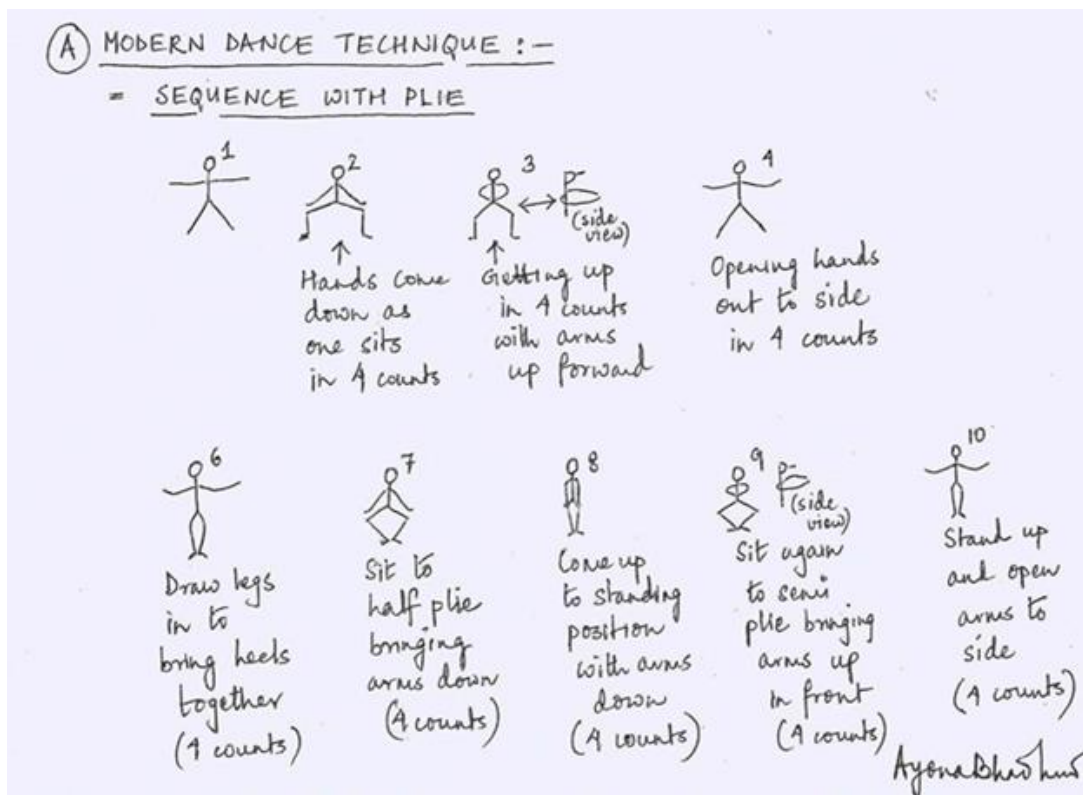 (A) MODERN DANCE TECHNIQUE :-
= SEQUENCE WITH PLIE
1
2
Hands come
down as
one sits
in 4 counts
3
(side
view)
Getting up
in 4 counts
with arms
up forward
4
Opening hands
out to side
in 4 counts
6
Draw legs
in to
bring heels
together
(4 counts)
7
Sit to
half plie
bringing
arms down
(4 counts)
8
Come up
to standing
position
with arms
down
(4 counts)
9
(side
view)
Sit again
to semi
plie bringing
arms up
in front
(4 counts)
10
Stand up
and open
arms to
side
(4 counts)